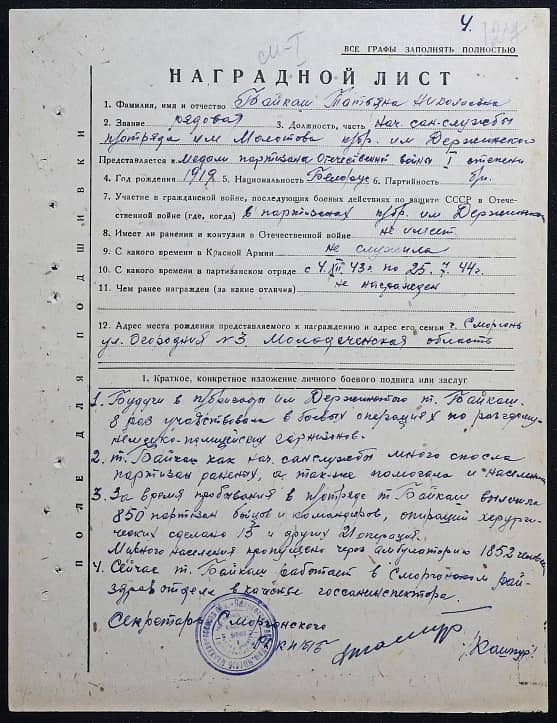 4.
ВСЕ ГРАФЫ ЗАПОЛНЯТЬ ПОЛНОСТЬЮ
НАГРАДНОЙ ЛИСТ
1. Фамилия, имя и отчество Байкаш Татьяна Николаевна
2. Звание рядовая 3. Должность, часть нач. сан-службы
п/отряда им Молотова п/бр. им Держинского
Представляется к медали партизана Отечественной войны I степени
4. Год рождения 1919 5. Национальность Белорус 6. Партийность б/п.
7. Участие в гражданской войне, последующих боевых действиях по защите СССР в Отече-
ственной войне (где, когда) в партизанах п/бр. им Держинского
8. Имеет ли ранения и контузии в Отечественной войне не имеет
9. С какого времени в Красной Армии не служила
10. С какого времени в партизанском отряде с 4.XII.43г. по 25.7.44г.
11. Чем ранее награжден (за какие отличия) не награжден
12. Адрес места рождения представляемого к награждению и адрес его семьи г. Сморгонь
ул. Огородная №3 Молодеченская область
1. Краткое, конкретное изложение личного боевого подвига или заслуг
1. Будучи в п/бригаде им Держинского т. Байкаш.
8 раз участвовала в боевых операциях по разгрому
немецко-полицейских гарнизонов.
2. т. Байкаш как нач. сан службы много спасла
партизан раненых, а так-же помогала и населению
3. За время пребывания в п/отряде т. Байкаш вылечила
850 партизан бойцов и командиров, операций хирурги-
ческих сделано 15 и других 21 операция.
Мирного населения пропущено через амбулаторию 1852 человек
4. Сейчас т. Байкаш работает в Сморгонском рай-
здравотдела в качестве госсанинспектора.
Секретарь Сморгонского
РК КП/б/Б
/Каппур/
ПОЛЕ ДЛЯ ПОДШИВКИ